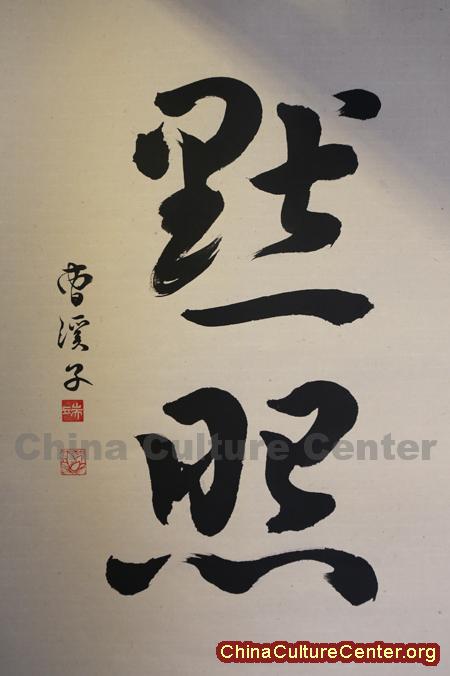 默照
曹溪子
China Culture Center
ChinaCultureCenter.org